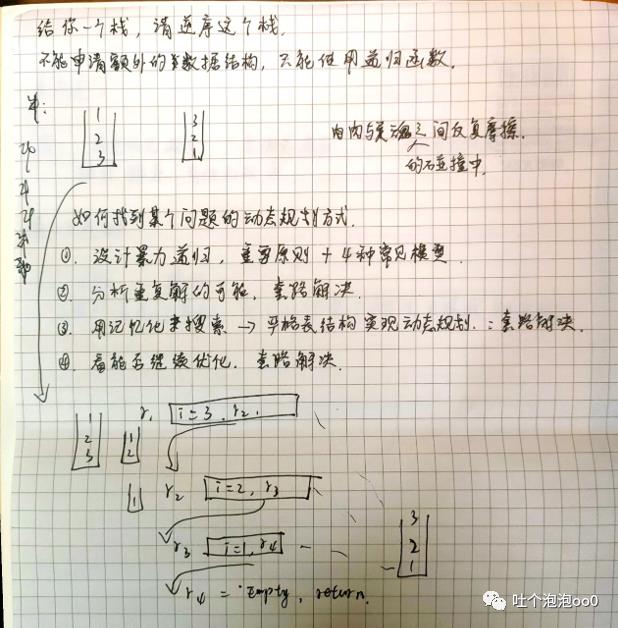 给你一个栈，请逆序这个栈，
不能申请额外的数据结构，只能使用递归函数。
1 3
2 2
3 1
肉肉与灵魂之间反复摩擦，
的碰撞中，
如何找到某个问题的动态规划方式
①. 设计暴力递归，重要原则 + 4种常见模型
②. 分析重复解的可能，套路解决
③. 用记忆化来搜索 → 严格表结构实现动态规划：套路解决
④. 看能否继续优化，套路解决
1
2 1
3 2
r, i=3, r2,
1 r2 i=2, r3
r3 i=1, r4
3
2
1
r4 = Empty, return
吐个泡泡oo0